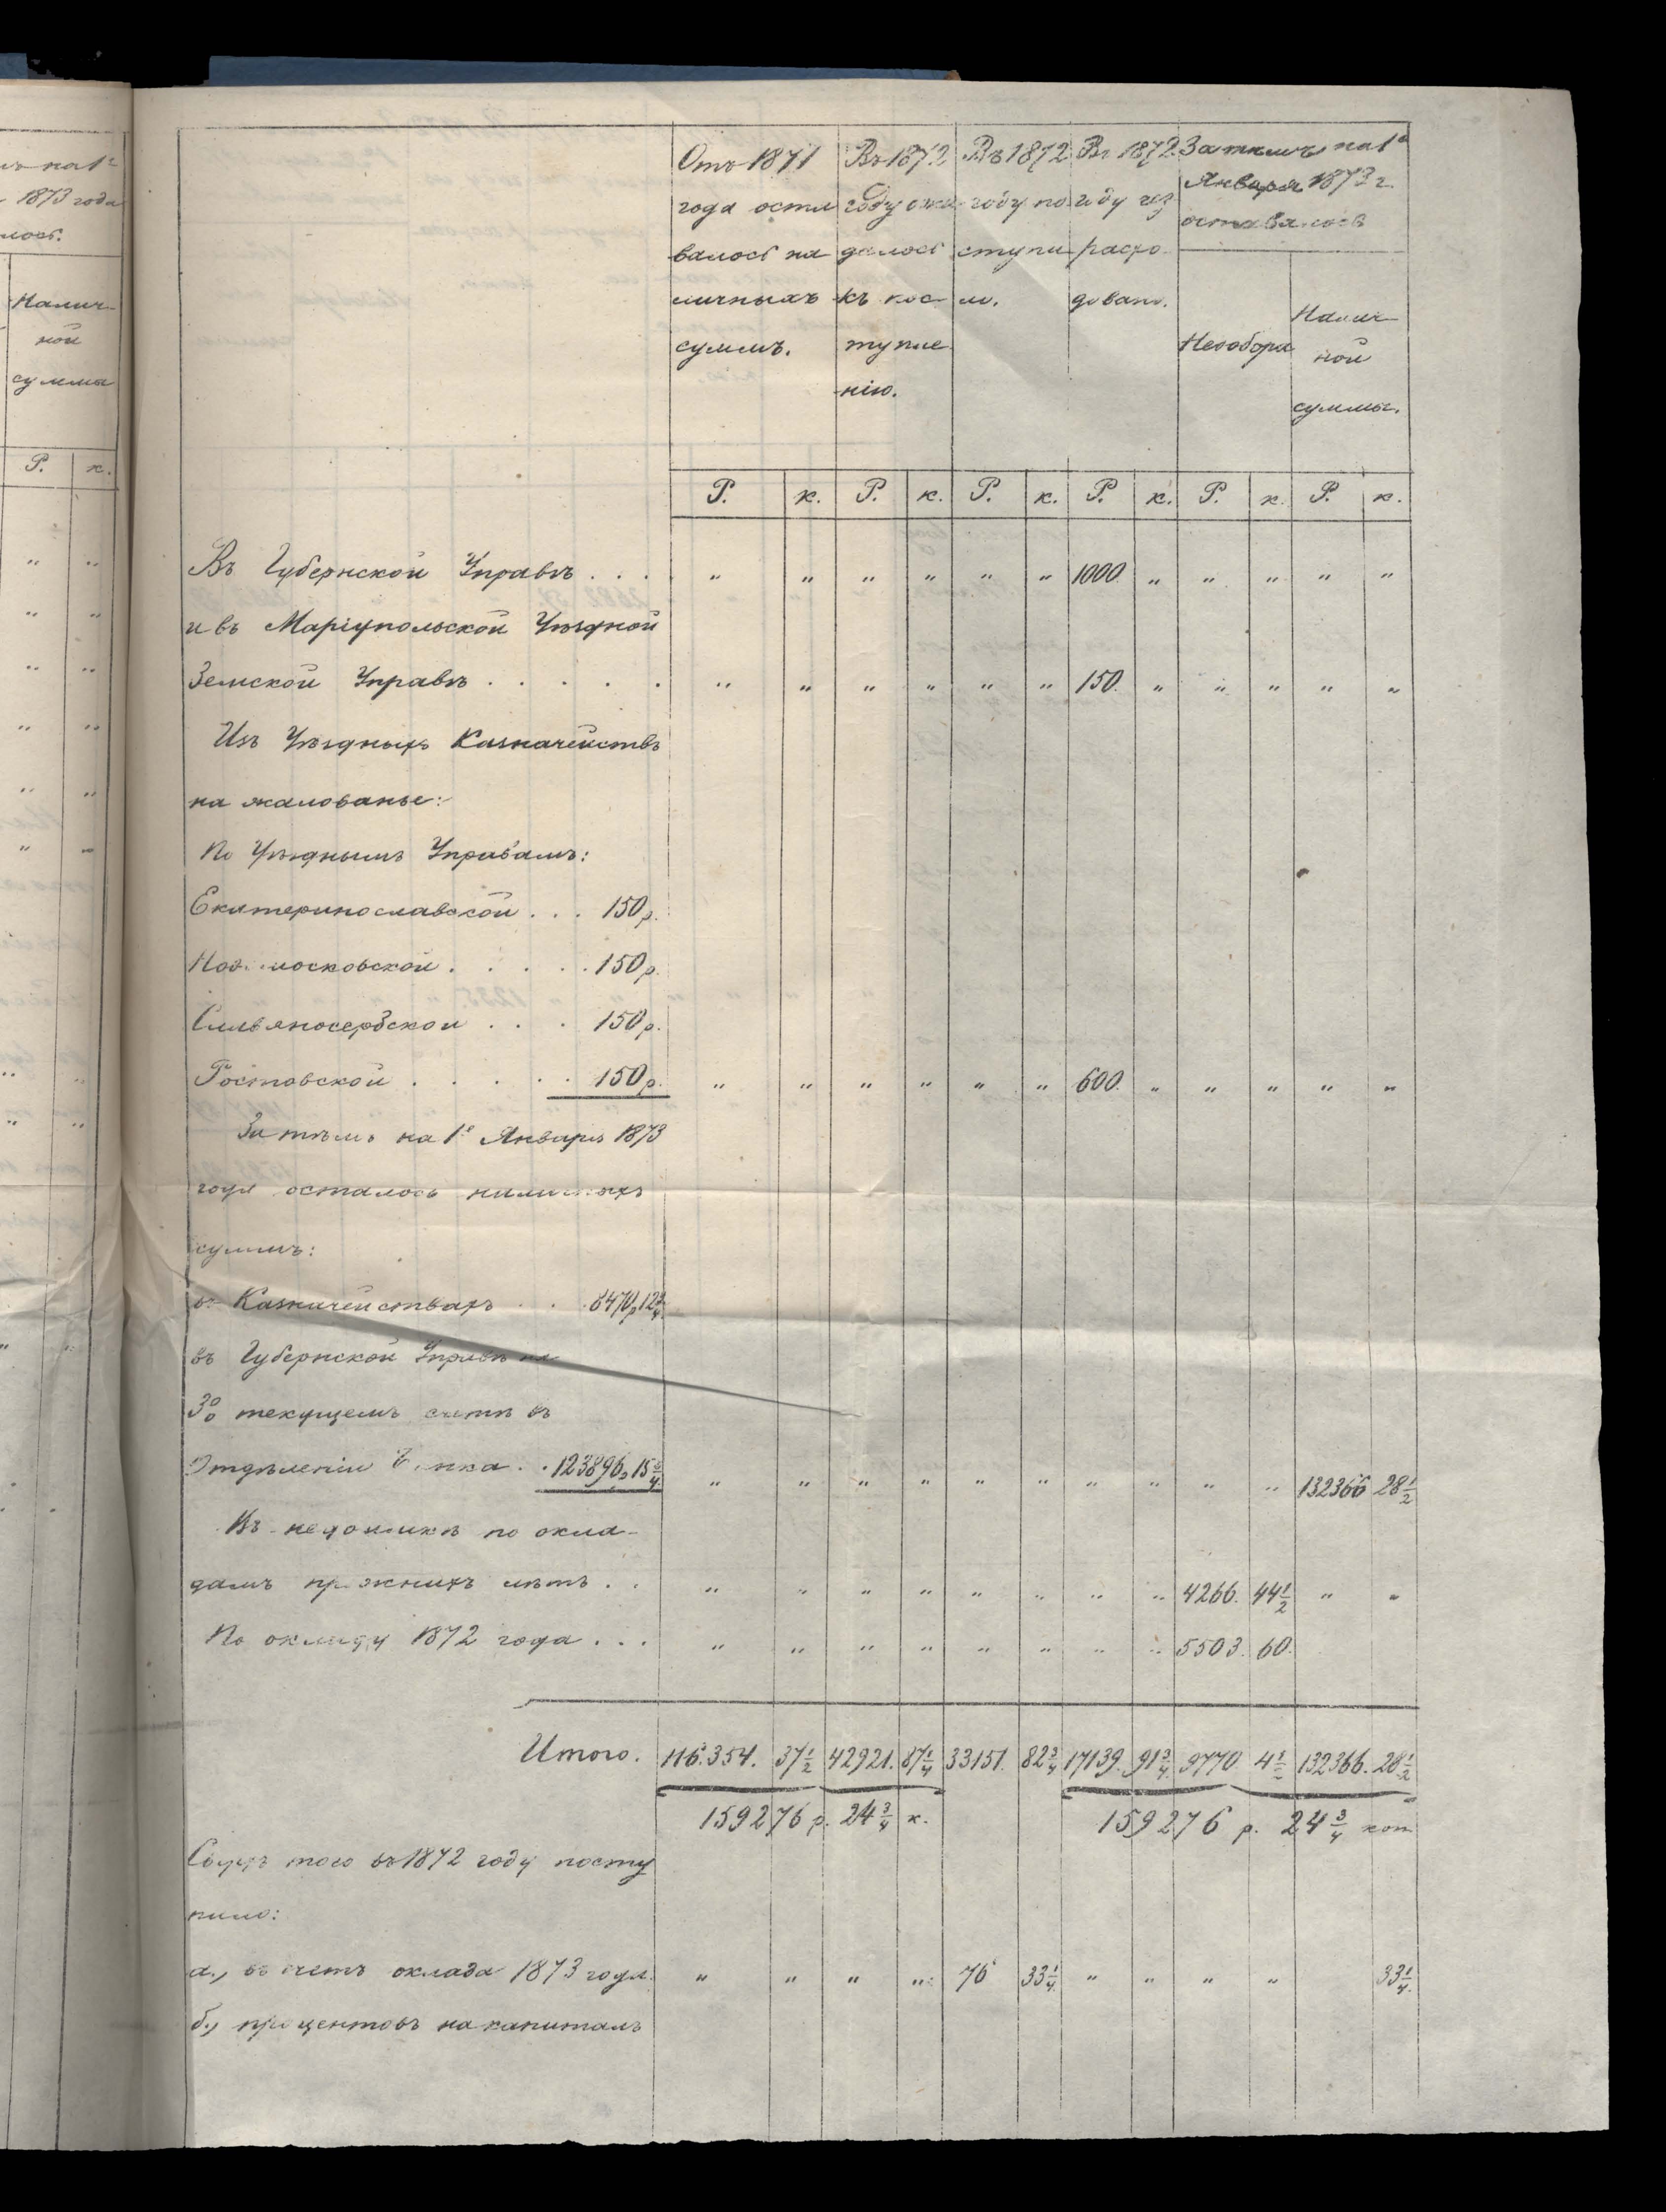 на 1е
1873 года
лось.
Налич-
ной
суммы
Р. к.
Отъ 1871 года оста
валось на
личныхъ
суммъ.
Въ 1872
году ожи
далось
къ пос
тупле
нію.
Въ 1872
году по
ступи
ло.
Въ 1872
году из
расхо
довано.
Затѣмъ на 1е
Января 1873 г.
оставалось
Недобора
Налич
ной
суммы.
Р. к. Р. к. Р. к. Р. к. Р. к. Р. к.
Въ Губернской Управѣ . . . " " " " " " 1000. " " " " "
и въ Маріупольской Уѣздной
Земской Управѣ . . . . . " " " " " " 150. " " " " "
Изъ Уѣздныхъ Казначействъ
на жалованье:
По Уѣзднымъ Управамъ:
Екатеринославской . . . 150 р.
Новомосковской . . . . . 150 р.
Славяносербской . . . 150 р.
Ростовской . . . . . 150 р. " " " " " " 600. " " " " "
Затѣмъ на 1е Января 1873
года осталось наличныхъ
суммъ:
въ Казначействахъ . . . 8470 р 12 3/4
въ Губернской Управѣ на
3% текущемъ счетѣ въ
Отдѣленіи Банка . . 123896 р 15 3/4 " " " " " " " " " " 132366 28 1/2
Въ недоимкѣ по окла-
дамъ прежнихъ лѣтъ . . " " " " " " " " 4266. 44 1/2 " "
По окладу 1872 года . . . " " " " " " " " 5503. 60.
Итого. 116.354. 37 1/2 42921. 87 1/4 33151. 82 3/4 17139. 91 3/4 9770 4 1/2 132366. 28 1/2
159276 р. 24 3/4 к. 159276 р. 24 3/4 коп
Сверхъ того въ 1872 году посту
пило:
а., въ счетъ оклада 1873 года. " " " " 76 33 1/4 " " " " 33 1/4
б., процентовъ на капиталъ